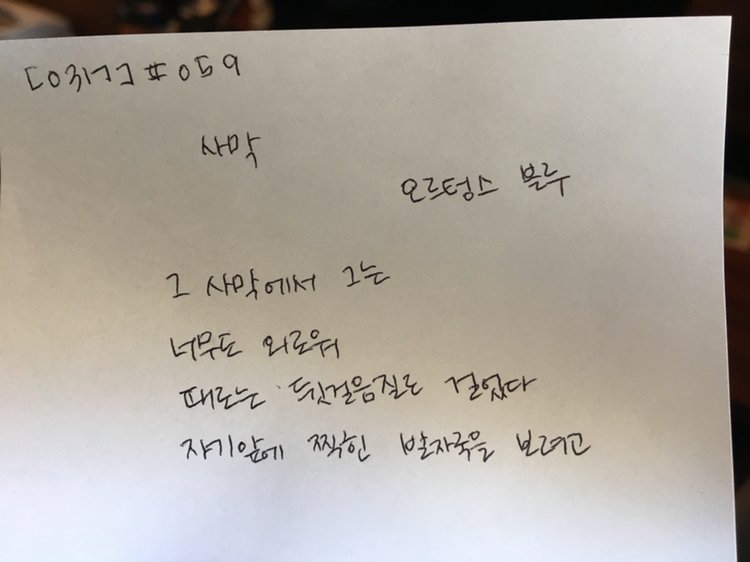 [0317] #059
사막
오르텅스 블루
그 사막에서 그는
너무도 외로워
때로는 뒷걸음질로 걸었다
자기앞에 찍힌 발자국을 보려고